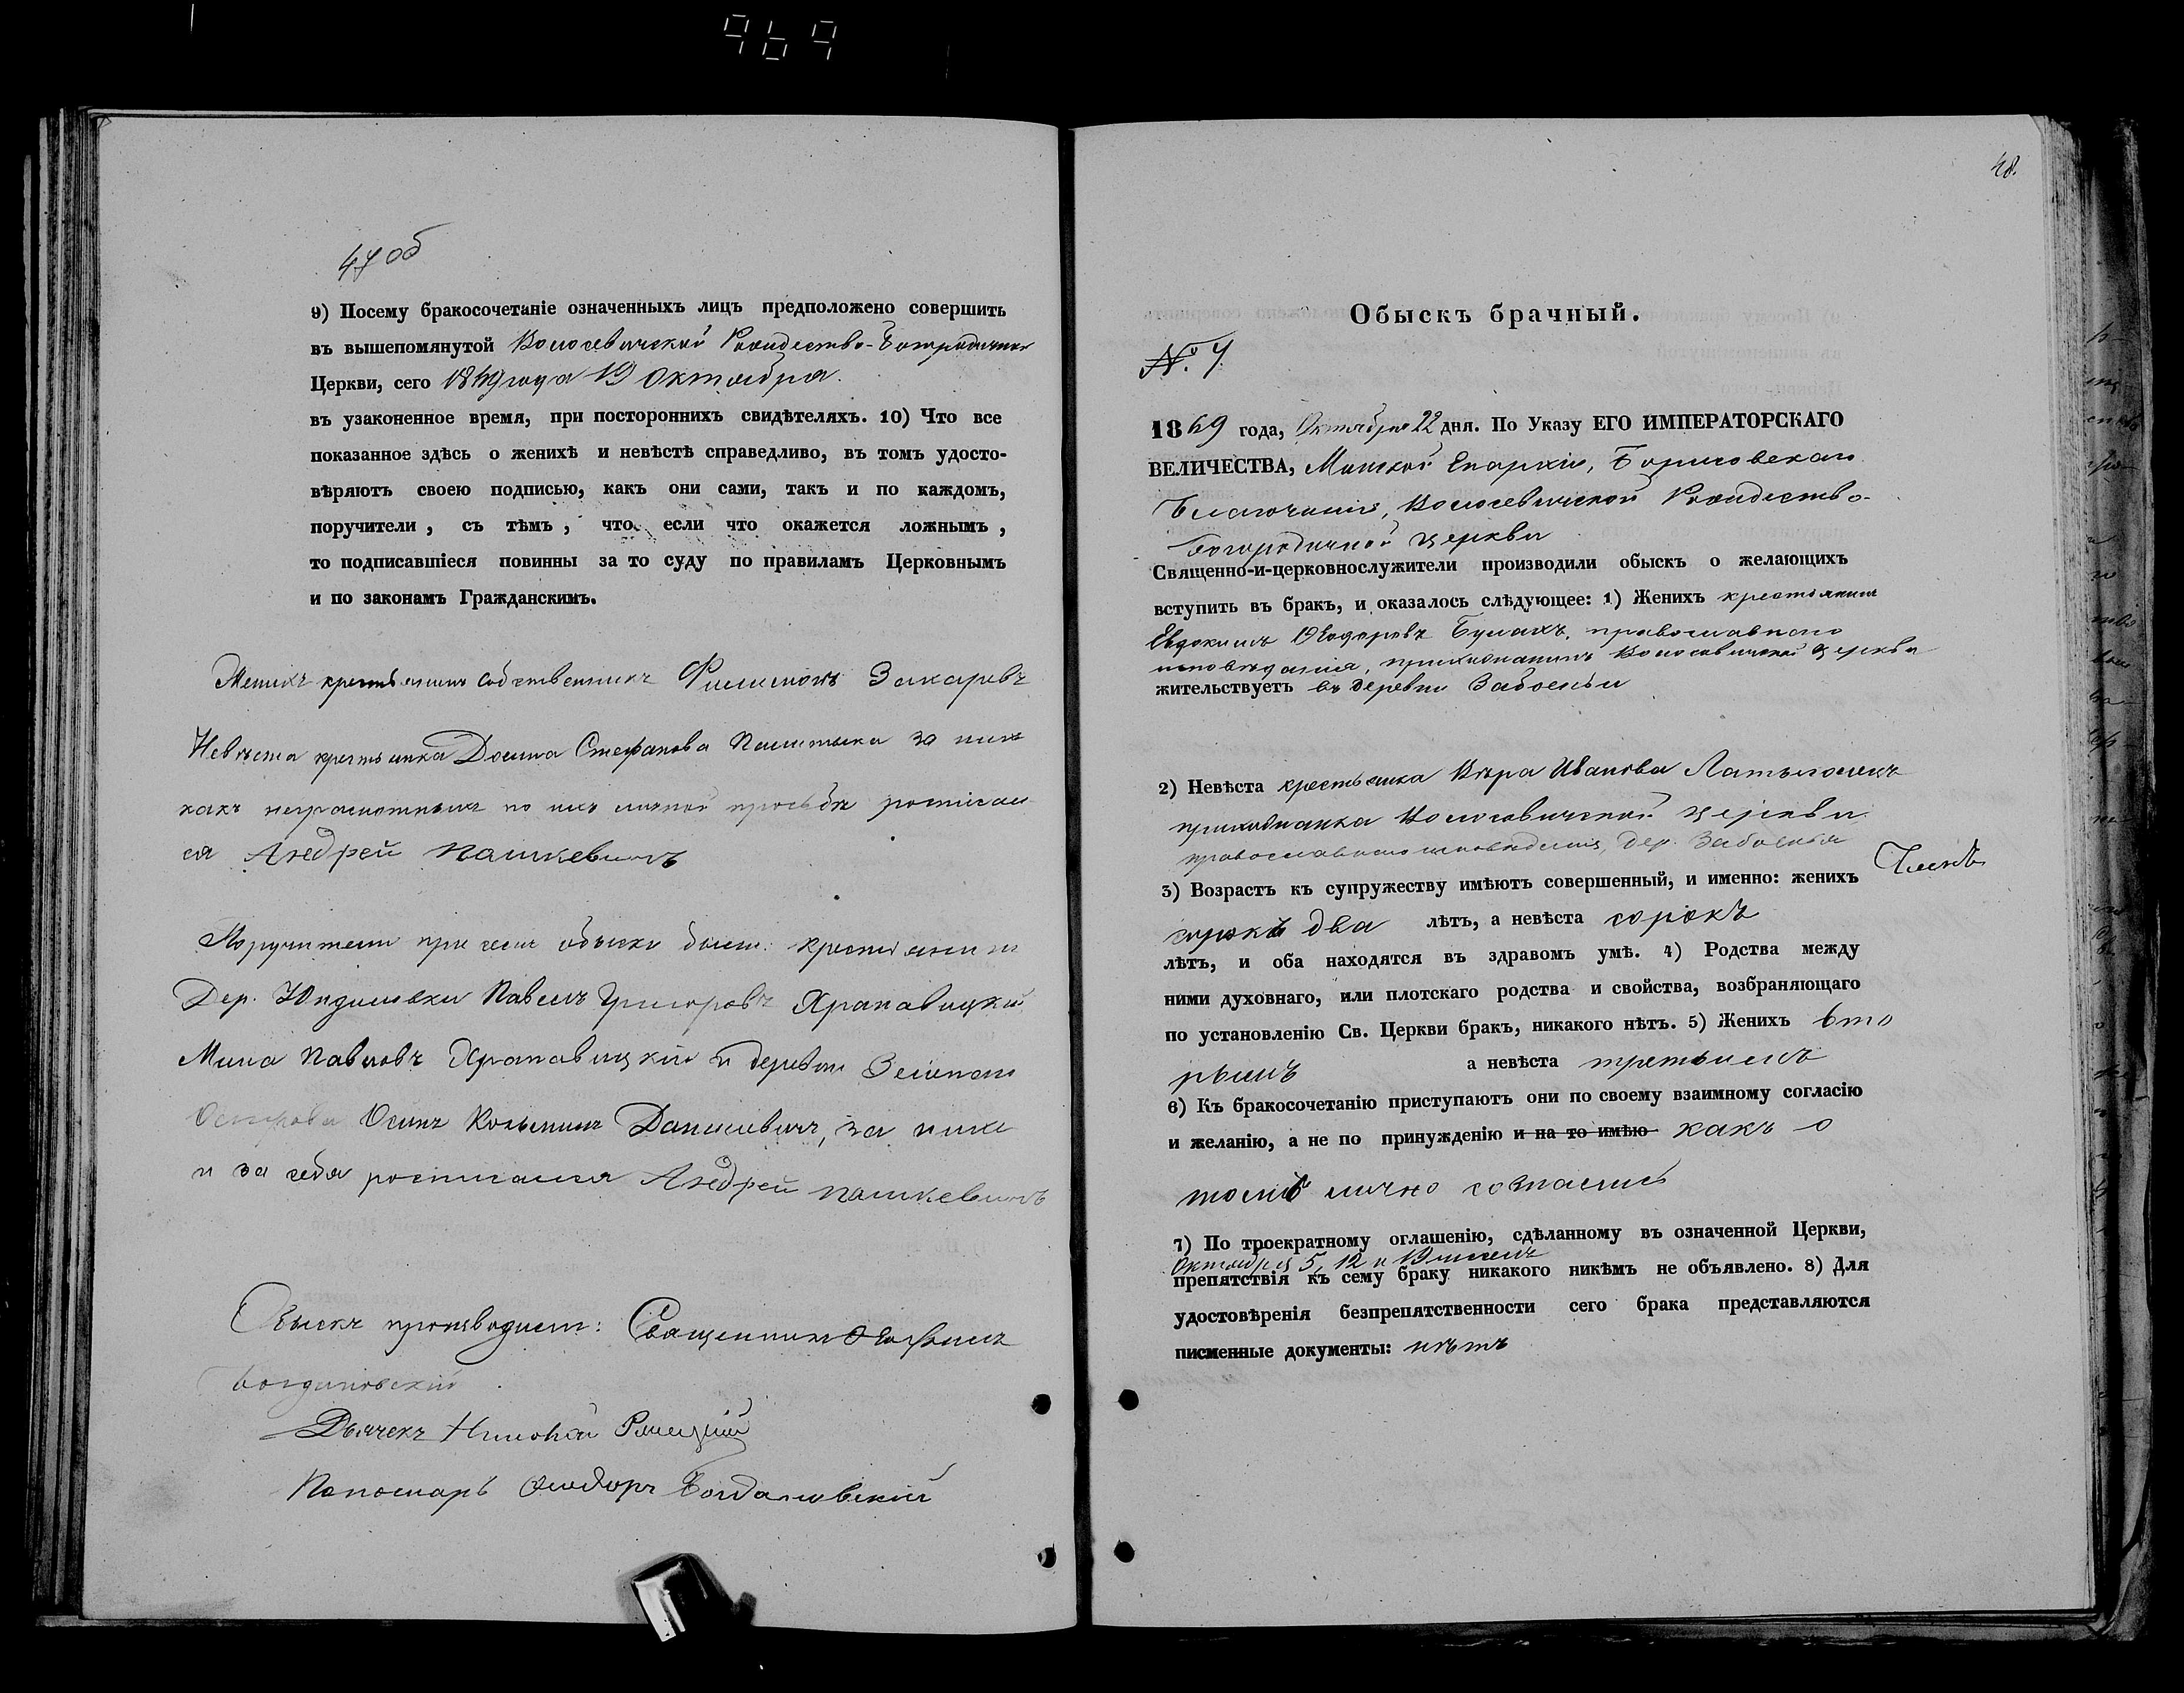 969
47 об
9) Посему бракосочетаніе означенныхъ лицъ предположено совершить
въ вышепомянутой Волосевичской Рождество-Богородичной
Церкви, сего 1869 года 19 Октября.
въ узаконенное время, при постороннихъ свидѣтеляхъ. 10) Что все
показанное здѣсь о женихѣ и невѣстѣ справедливо, въ томъ удосто-
вѣряютъ своею подписью, какъ они сами, такъ и по каждомъ,
поручители, съ тѣмъ, что если что окажется ложнымъ,
то подписавшіеся повинны за то суду по правиламъ Церковнымъ
и по законамъ Гражданскимъ.
Женихъ крестьянинъ собственникъ Филимонъ Захаревъ
Невѣста крестьянка Домна Стефанова за нихъ
какъ неграмотныхъ по ихъ личной просьбѣ росписал
ся Андрей Пашкевичъ
Поручители при семъ обыскѣ были: крестьянинъ
Дер. Юндиловки Павелъ Григоровъ Храповицкій
Мина Павловъ Храповицкій и деревни Зеленого
Острова Осипъ Козьминъ Данилевичъ, за нихъ
и за себя росписался Андрей Пашкевичъ
Обыскъ производили: Священникъ
Богдановскій
Дьячекъ Николай
Пономарь Ѳеодоръ Богдановскій
48.
Обыскъ брачный.
№. 7
1869 года, Октября 22 дня. По Указу ЕГО ИМПЕРАТОРСКАГО
ВЕЛИЧЕСТВА, Минской Епархіи, Борисовскаго
Благочинія, Волосевичской Рождество-
Богородичной церкви
Священно-и-церковнослужители производили обыскъ о желающихъ
вступить въ бракъ, и оказалось слѣдующее: 1) Женихъ крестьянинъ
Евдокимъ Ѳеодоровъ Булахъ, православнаго
исповѣданія, прихожанинъ Волосовичской церкви
жительствуетъ въ деревни Забоенья
2) Невѣста крестьянка Вѣра Иванова
прихожанка Волосовичской церкви
православного исповѣданія, дер. Забоенья
3) Возрастъ къ супружеству имѣютъ совершенный, и именно: женихъ
сорокъ два лѣтъ, а невѣста сорокъ
лѣтъ, и оба находятся въ здравомъ умѣ. 4) Родства между
ними духовнаго, или плотскаго родства и свойства, возбраняющаго
по установленію Св. Церкви бракъ, никакого нѣтъ. 5) Женихъ вто
рымъ а невѣста третьимъ
6) Къ бракосочетанію приступаютъ они по своему взаимному согласію
и желанію, а не по принужденію и на то имѣю какъ о
томъ лично сознались
7) По троекратному оглашенію, сдѣланному въ означенной Церкви,
Октября 5, 12 и 19 числъ
препятствія къ сему браку никакого никѣмъ не объявлено. 8) Для
удостовѣренія безпрепятственности сего брака представляются
писменные документы: нѣтъ